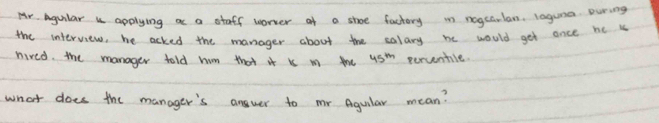 Mr. Aguilar is applying as a staff worker of a shoe factory in nagcarlan, laguna. During
the interview, he acked the manager about the salary he would get once he is
hired. the manager told him that it is in the 45th percentile.
what does the manager's answer to mr Aguilar mean?